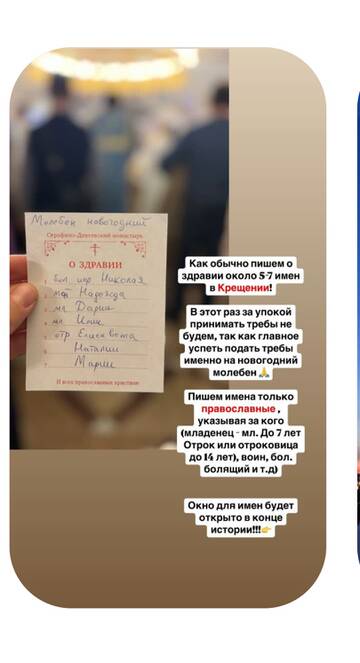 Молебен новогодний
Серафимо-Дивеевский монастырь
О ЗДРАВИИ
бол иер Николая
Надежда
мл Дария
мл
отр Елисавета
6 Наталии
7 Марии
И всех православных христиан
Как обычно пишем о
здравии около 5-7 имен
в Крещении!
В этот раз за упокой
принимать требы не
будем, так как главное
успеть подать требы
именно на новогодний
молебен 🙏
Пишем имена только
православные ,
указывая за кого
(младенец - мл. До 7 лет
Отрок или отроковица
до 14 лет), воин, бол.
болящий и т.д)
Окно для имен будет
открыто в конце
истории!!!👉